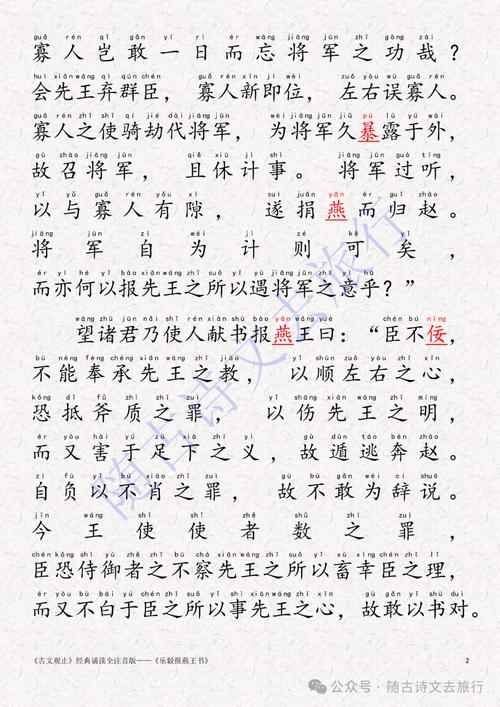 guǎ rén qǐ gǎn yí rì ér wàng jiāng jūn zhī gōng zāi
寡人岂敢一日而忘将军之功哉？
huì xiān wáng qì qún chén guǎ rén xīn jí wèi zuǒ yòu wù guǎ rén
会先王弃群臣，寡人新即位，左右误寡人。
guǎ rén zhī shǐ qí jié dài jiāng jūn wèi jiāng jūn jiǔ pù lù yú wài
寡人之使骑劫代将军，为将军久暴露于外，
gù zhào jiāng jūn qiě xiū jì shì jiāng jūn guò tīng
故召将军，且休计事。将军过听，
yǐ yǔ guǎ rén yǒu xì suì juān yān ér guī zhào
以与寡人有隙，遂捐燕而归赵。
jiāng jūn zì wéi jì zé kě yǐ
将军自为计则可矣，
ér yì hé yǐ bào xiān wáng zhī suǒ yǐ yù jiāng jūn zhī yì hū
而亦何以报先王之所以遇将军之意乎？”
wàng zhū jūn nǎi shǐ rén xiàn shū bào yān wáng yuē chén bú nìng
望诸君乃使人献书报燕王曰：“臣不佞，
bù néng fèng chéng xiān wáng zhī jiào yǐ shùn zuǒ yòu zhī xīn
不能奉承先王之教，以顺左右之心，
kǒng dǐ fǔ zhì zhī zuì yǐ shāng xiān wáng zhī míng
恐抵斧质之罪，以伤先王之明，
ér yòu hài yú zú xià zhī yì gù dùn táo bēn zhào
而又害于足下之义，故遁逃奔赵。
zì fù yǐ bú xiào zhī zuì gù bù gǎn wéi cí shuō
自负以不肖之罪，故不敢为辞说。
jīn wáng shǐ shǐ zhě shǔ zhī zuì
今王使使者数之罪，
chén kǒng shì yù zhě zhī bù chá xiān wáng zhī suǒ yǐ xù xìng chén zhī lǐ
臣恐侍御者之不察先王之所以畜幸臣之理，
ér yòu bù bái yú chén zhī suǒ yǐ shì xiān wáng zhī xīn gù gǎn yǐ shū duì
而又不白于臣之所以事先王之心，故敢以书对。
《古文观止》经典诵读全注音版——《乐毅报燕王书》 2
随古诗文去旅行
公众号·随古诗文去旅行